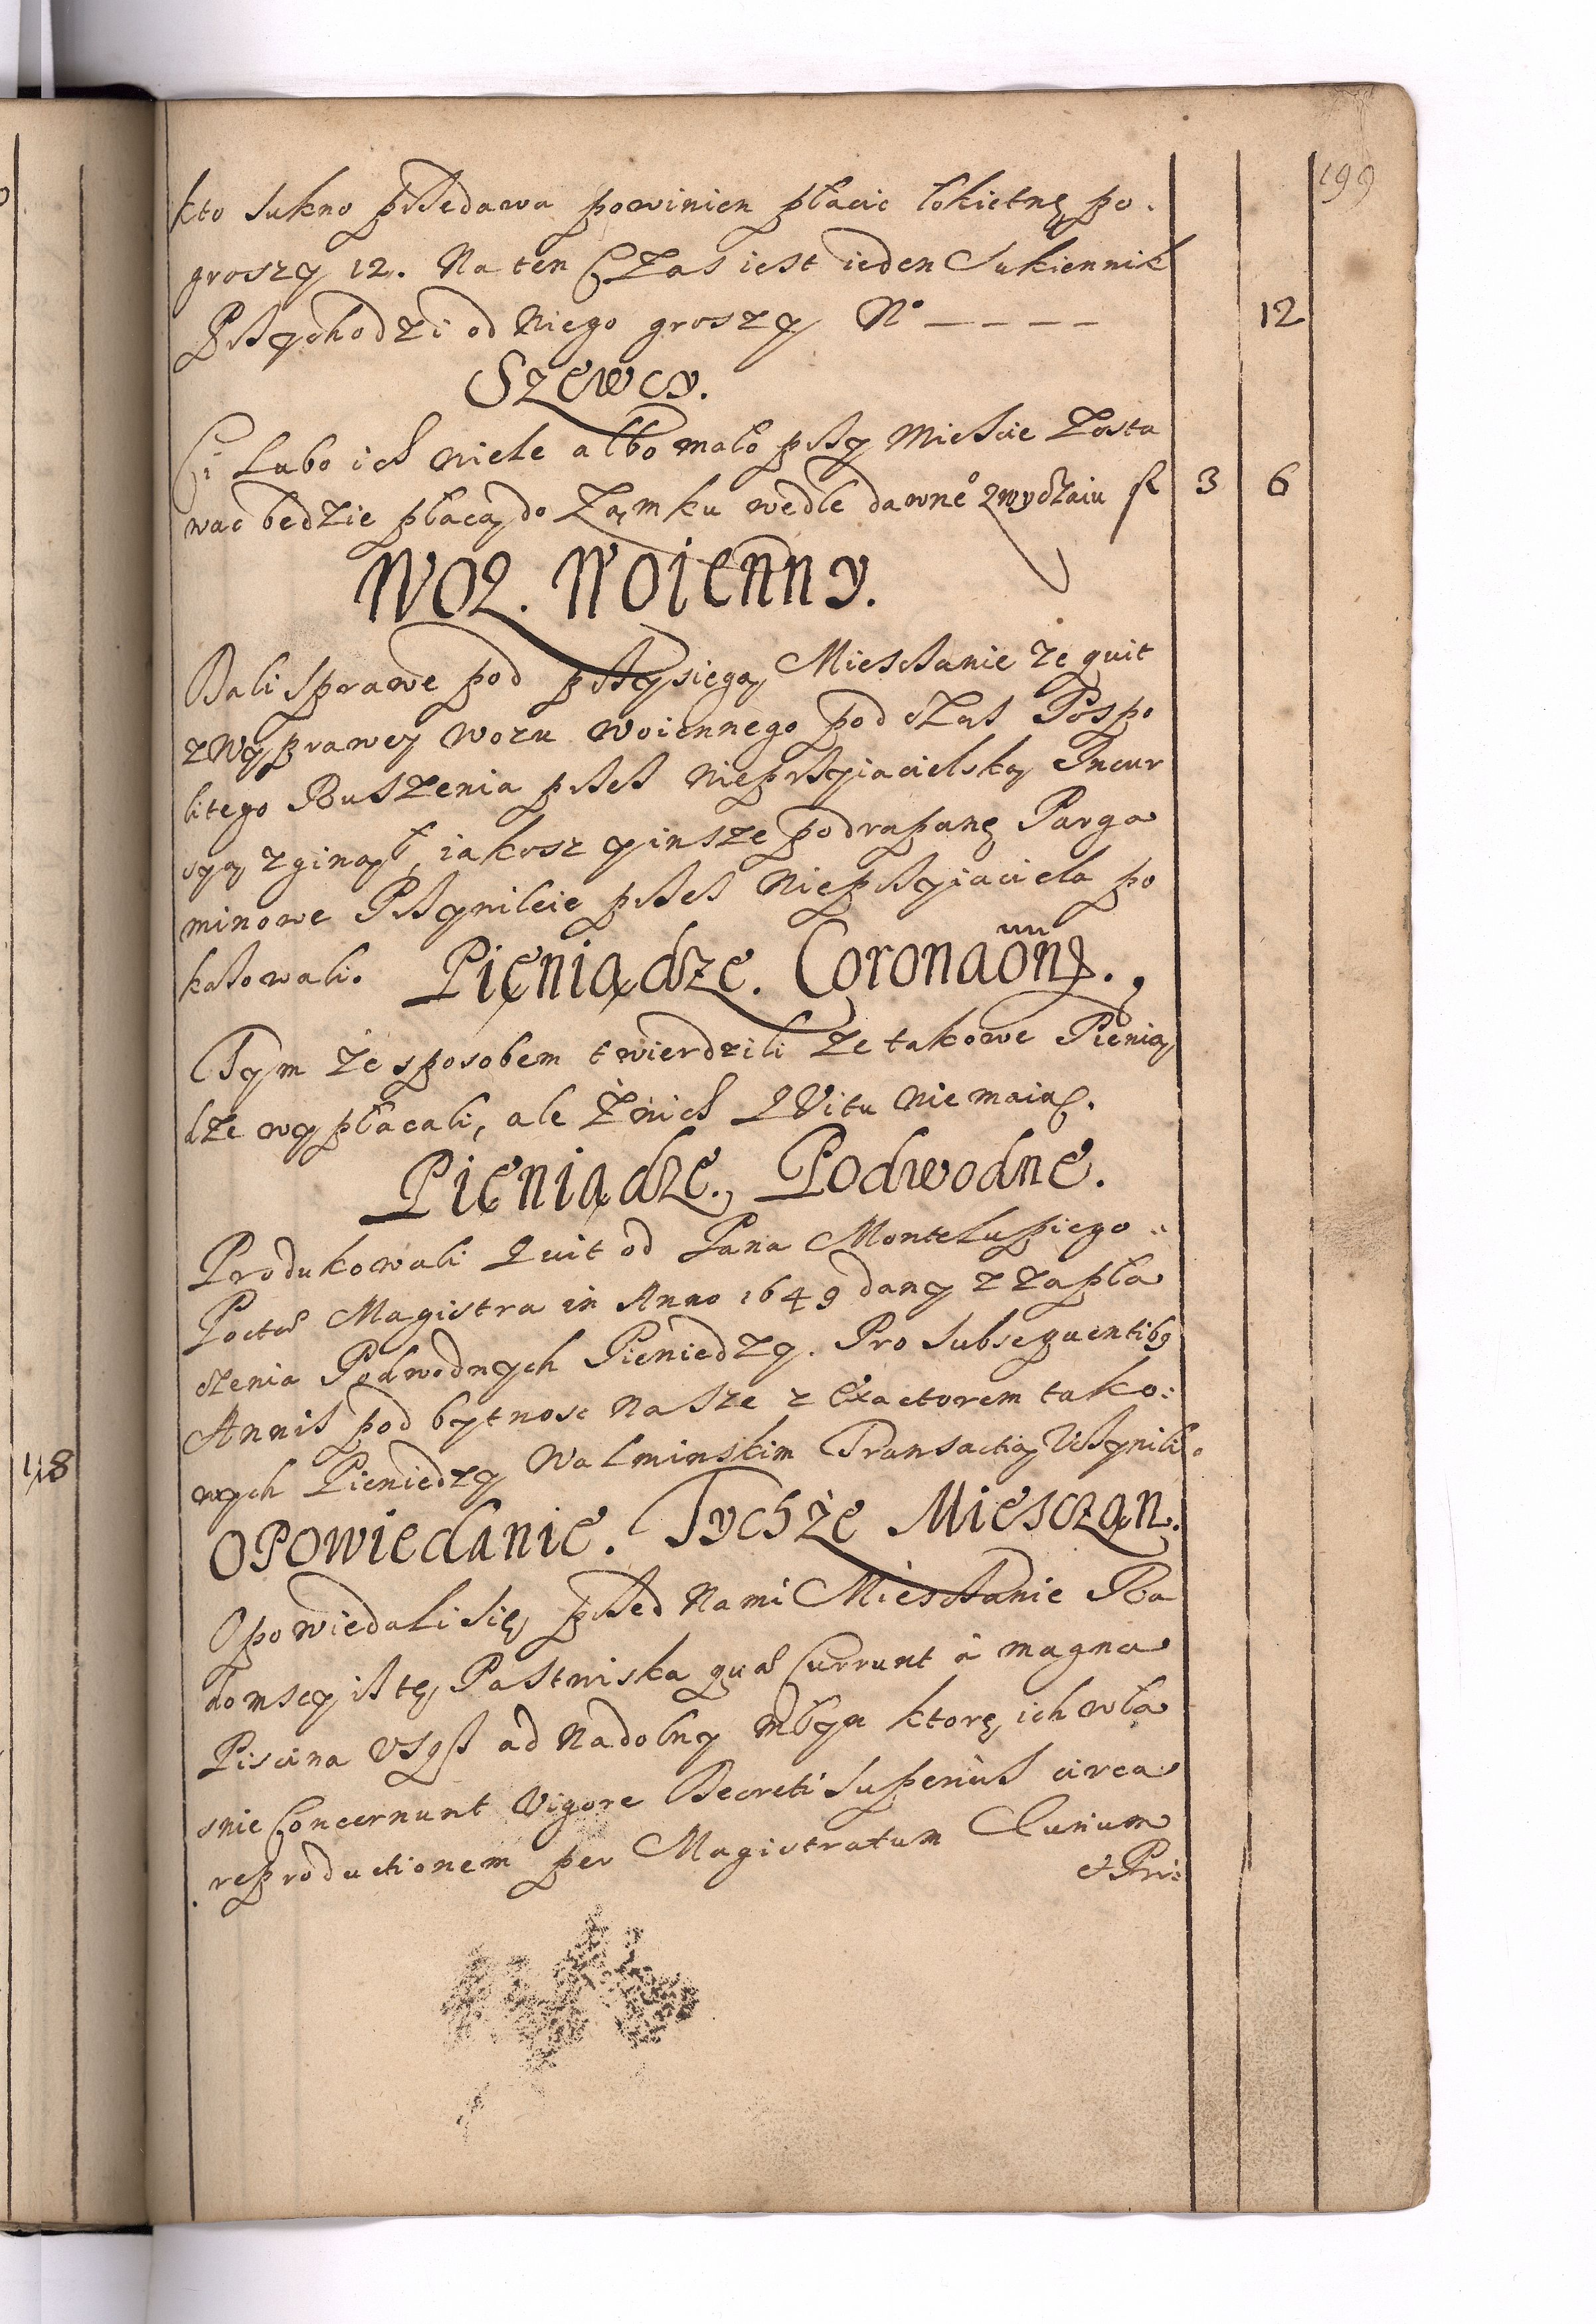 199
kto sukno przedawa powinien płacic łokietnę po.
groszy 12. Na ten Czas iest ieden Sukiennik
Przychodzi od Niego groszy No ———— 12
Szewcy.
Ci Lubo ich wiele albo mało przy Miescie Zosta
wac bedzie płacą do Zamku wedle dawnego zwyczaiu fl 3 6
WOZ. WOIENNY.
Dali sprawe pod przysięgą Miesczanie ze quit
z wyprawey wozu woiennego pod czas Pospo
litego Ruszenia przez nieprzyiacielską Incur
syą zginął, iakosz y insze podrapanę Parga
minowe Przywileie przez Nieprzyiaciela po
kazowali. Pięniądze. Coronaōnỹ.
Tym że sposobem twierdzili że takowe Pienią
dze wypłacali, ale Znich QVitu nie maią.
Pięniądze. Podwodne.
Produkowali Quit od Pana Montelupiego
Poctae Magistra in Anno 1649 dany z zapła
czenia Podwodnych Pieniedzy. Pro Subsequentibus
Annis pod bytnosc Nasze z Exactorem tako:
wych Pieniedzy Walminskim Transactią Uczynili.
OPOWIEdANIE. Tychże Miesczan.
Opowiedali się przed Nami Miesczanie Ra
domscy iż tę Pastwiska quae Currunt à magna
Piscina Usque ad Nadolny Młyn ktorę ich wła
snie Concernunt Vigore Decreti Superius circa
reproductionem per Magistratum Iurium
et Pri:
18